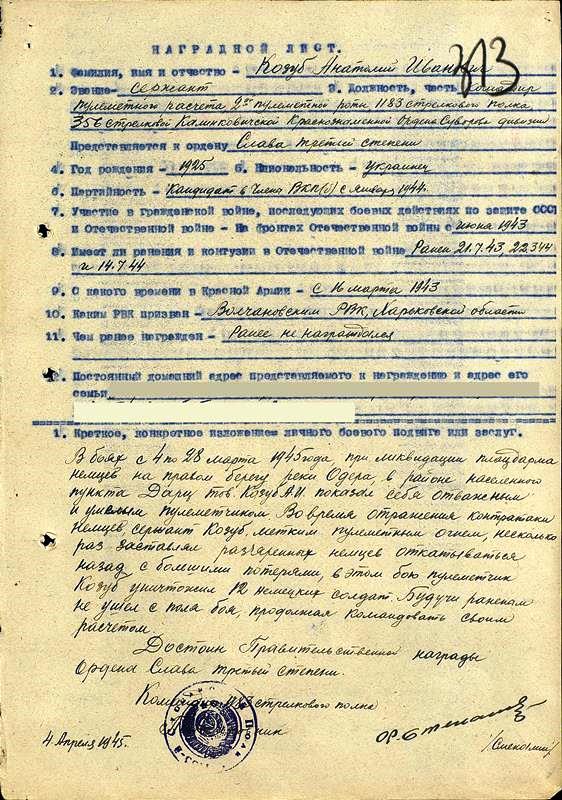 313
НАГРАДНОЙ ЛИСТ.
1. Фамилия, имя и отчество - Козуб Анатолий Иванович
2. Звание - сержант 3. Должность, часть командир
пулеметного расчета 2ой пулеметной роты 1183 стрелкового полка
356 стрелковой Калинковичской Краснознаменной Ордена Суворова дивизии
Представляется к ордену Слава третьей степени
4. Год рождения - 1925 5. Национальность - Украинец
6. Партийность - Кандидат в Члены ВКП(б) с Января 1944г.
7. Участие в Гражданской войне, последующих боевых действиях по защите СССР
и Отечественной войне - На фронтах Отечественной войны с июня 1943
8. Имеет ли ранения и контузии в Отечественной войне Ранен 21.7.43, 22.3.44
и 14.7.44
9. С какого времени в Красной Армии - с 16 марта 1943
10. Каким РВК призван - Волчановским РВК, Харьковской области
11. Чем ранее награжден - Ранее не награждался
12. Постоянный домашний адрес представляемого к награждению и адрес его
семьи
1. Краткое, конкретное изложение личного боевого подвига или заслуг.
В боях с 4 по 28 марта 1945 года при ликвидации плацдарма
немцев на правом берегу реки Одера, в районе населенного
пункта Дарц тов. Козуб А.И. показал себя отважным
и умелым пулеметчиком. Во время отражения контратаки
немцев, сержант Козуб, метким пулеметным огнем, несколько
раз заставлял разъяренных немцев откатываться
назад с большими потерями, в этом бою пулеметчик
Козуб уничтожил 12 немецких солдат. Будучи раненым
не ушел с поля боя, продолжая командовать своим
расчетом.
Достоин Правительственной награды
Ордена Слава третьей степени.
Командир 1183 стрелкового полка
4 Апреля 1945.